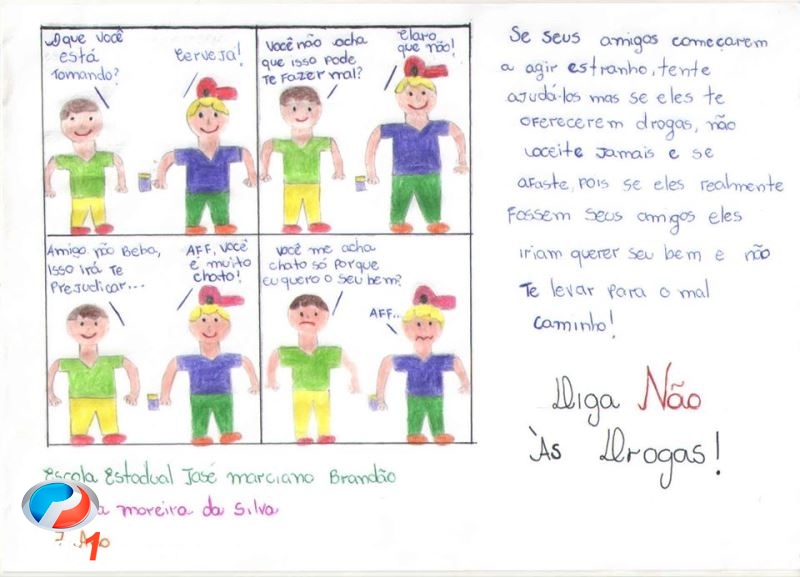 O que você
está
tomando?
Cerveja!
Você não acha
que isso pode
te fazer mal?
Claro
que não!
Amigo não Beba,
isso irá te
prejudicar...
AFF, você
é muito
chato!
Você me acha
chato só porque
eu quero o seu bem?
AFF...
Se seus amigos começarem
a agir estranho, tente
ajudá-los mas se eles te
oferecerem drogas, não
aceite jamais e se
afaste, pois se eles realmente
fossem seus amigos eles
iriam querer seu bem e não
te levar para o mal
caminho!
Diga Não
Às Drogas!
Escola Estadual José marciano Brandão
moreira da Silva
1